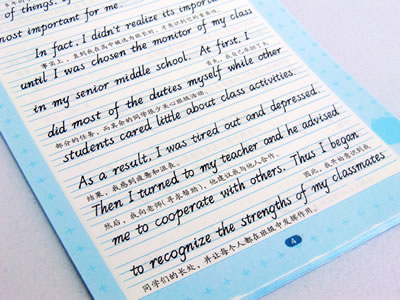 of things.
most important for me.
In fact, I didn't realize its importa
until I was chosen the monitor of my class
in my senior middle school. At first, I
did most of the duties myself while other
部分的任务,而其余的同学很少关心班级活动。
students cared little about class activities.
As a result, I was tired out and depressed.
结果,我感到疲惫和沮丧。
Then I turned to my teacher and he advised
然后,我向老师(寻求帮助),他建议我与他人合作。
me to cooperate with others. Thus I began
因此,我开始意识到我
to recognize the strengths of my classmates
同学们的长处,并让每个人都在班级中发挥作用。
4